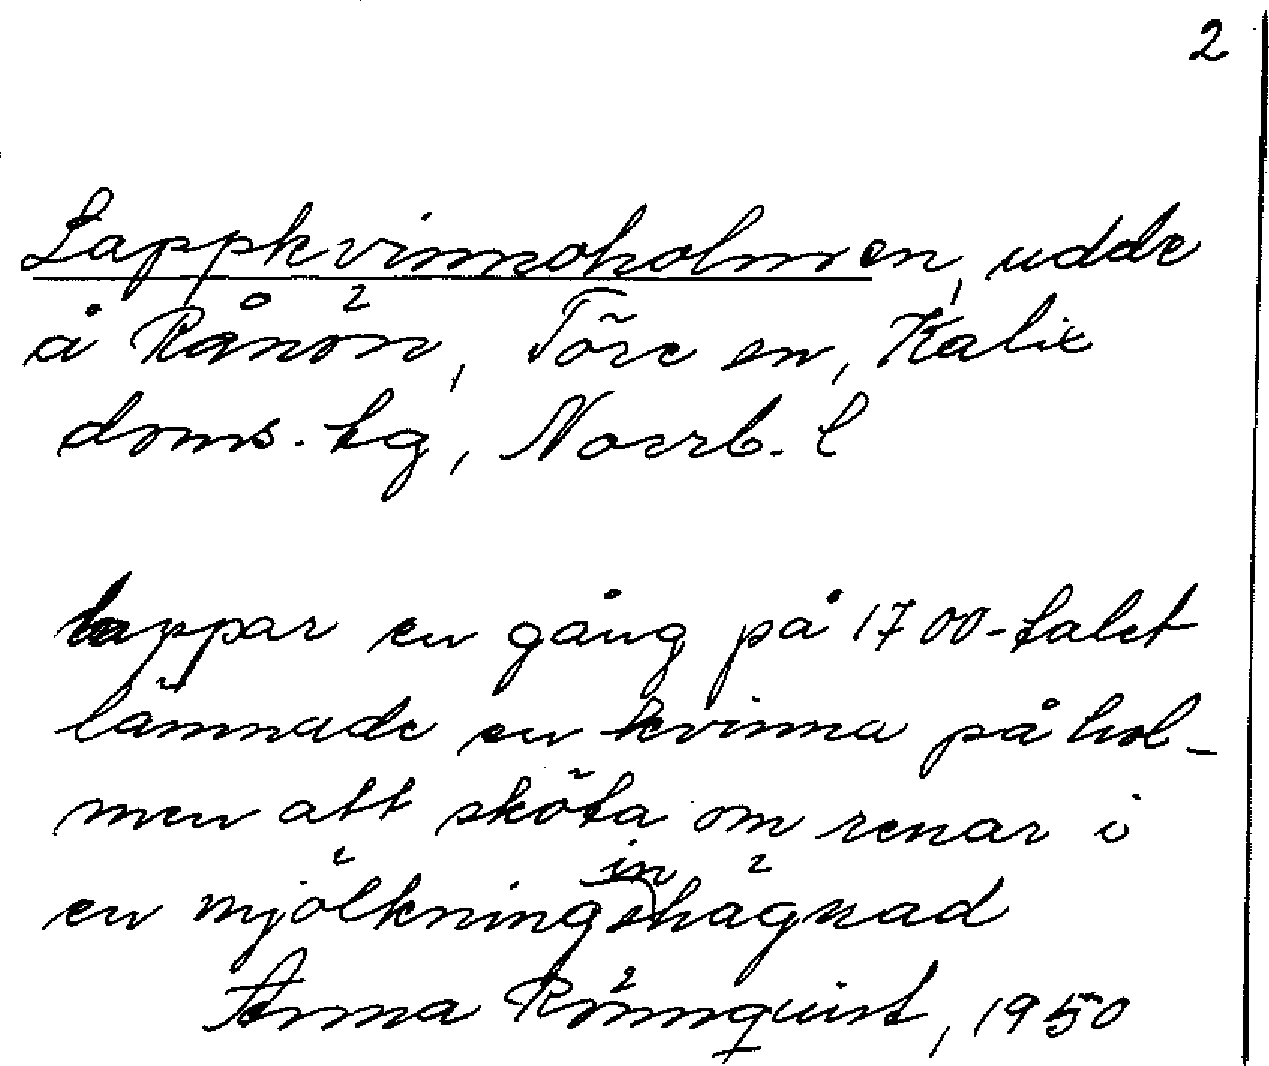 2
Lappkvinnoholmen, udde
å Rånön, Töre sn, Kalix
doms. tg, Norrb. l
lappar en gång på 1700-talet
lämnade en kvinna på hol-
men att sköta om renar i
en mjölkningsinhägnad
Anna Rönnquist, 1950